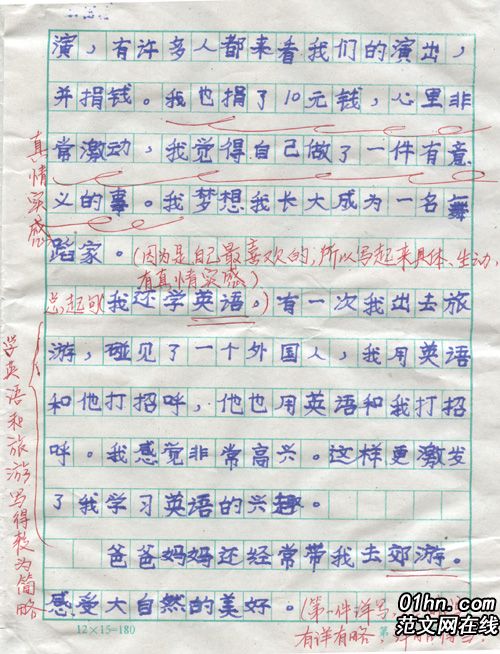 演，有许多人都来看我们的演出，
并捐钱。我也捐了10元钱，心里非
常激动，我觉得自己做了一件有意
义的事。我梦想我长大成为一名舞
蹈家。(因为是自己最喜欢的，所以写起来具体、生动，
有真情实感)
真情实感
总起句(我还学英语。)有一次我出去旅
游，碰见了一个外国人，我用英语
和他打招呼，他也用英语和我打招
呼。我感觉非常高兴。这样更激发
了我学习英语的兴趣。
学英语和旅游写得较为简略
爸爸妈妈还经常带我去郊游。
感受大自然的美好。(第一件详写，
有详有略，
12×15=180
第
01hn.com
范文网在线